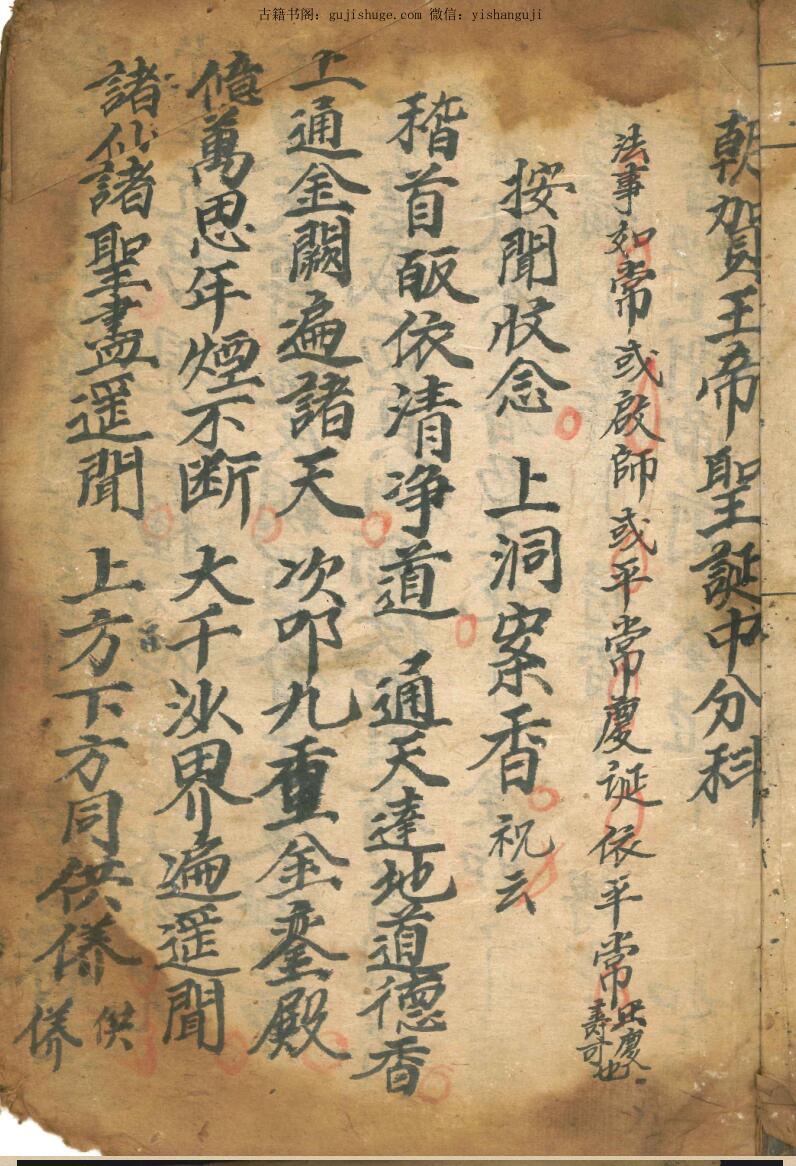 古籍书阁：gujishuge.com 微信：yishanguji
朝賀王帝聖誕中分科
法事如常或啟師或平常慶誕依平常正慶壽可也
按聞收念 上洞案香 祝云
稽首皈依清净道 通天達地道德香
上通金闕遍諸天 次叩九重金銮殿
億萬思年煙不断 大千沙界遍遥聞
諸仙諸聖盡遥聞 上方下方同供侨
供侨